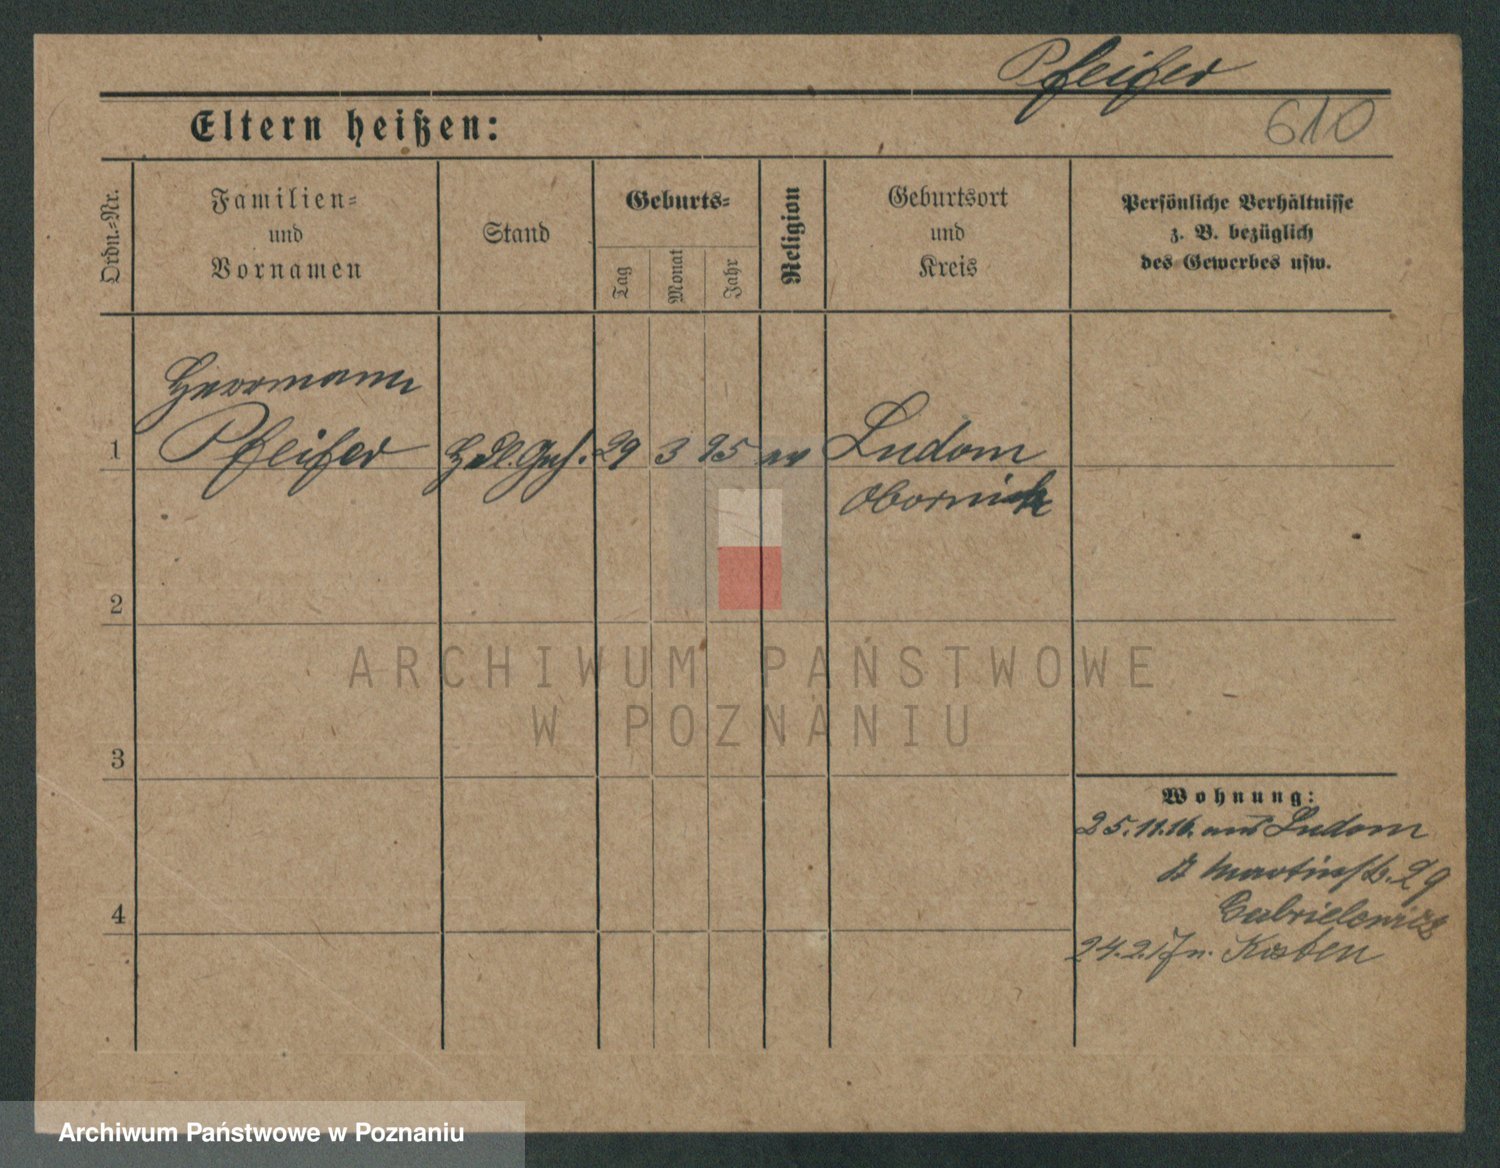 Pfeifer
610
Eltern heißen:
Ordn.-Nr.
Familien-
und
Vornamen
Stand
Geburts-
Tag
Monat
Jahr
Religion
Geburtsort
und
Kreis
Persönliche Verhältnisse
z. B. bezüglich
des Gewerbes usw.
Herrmann
1 Pfeifer Hdl. Geh. 29 3 95 ev Ludom
Obornick
2
ARCHIWUM PAŃSTWOWE
W POZNANIU
3
Wohnung:
25.11.16. aus Ludom
St Martinstr. 29
Gabrielewicz
4
24.2.17 n. Kosten
Archiwum Państwowe w Poznaniu